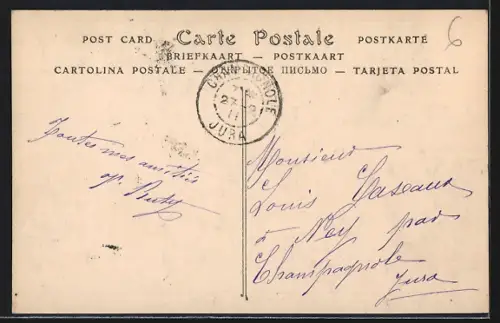 POST CARD – Carte Postale – POSTKARTE
BRIEFKAART – POSTKAART
CARTOLINA POSTALE – ОТКРЫТОЕ ПИСЬМО – TARJETA POSTAL
6
CHAMPAGNOLE
27
11
JURA
Toutes mes amitiés
Monsieur
Louis Cazeaux
à Ney par
Champagnole
Jura